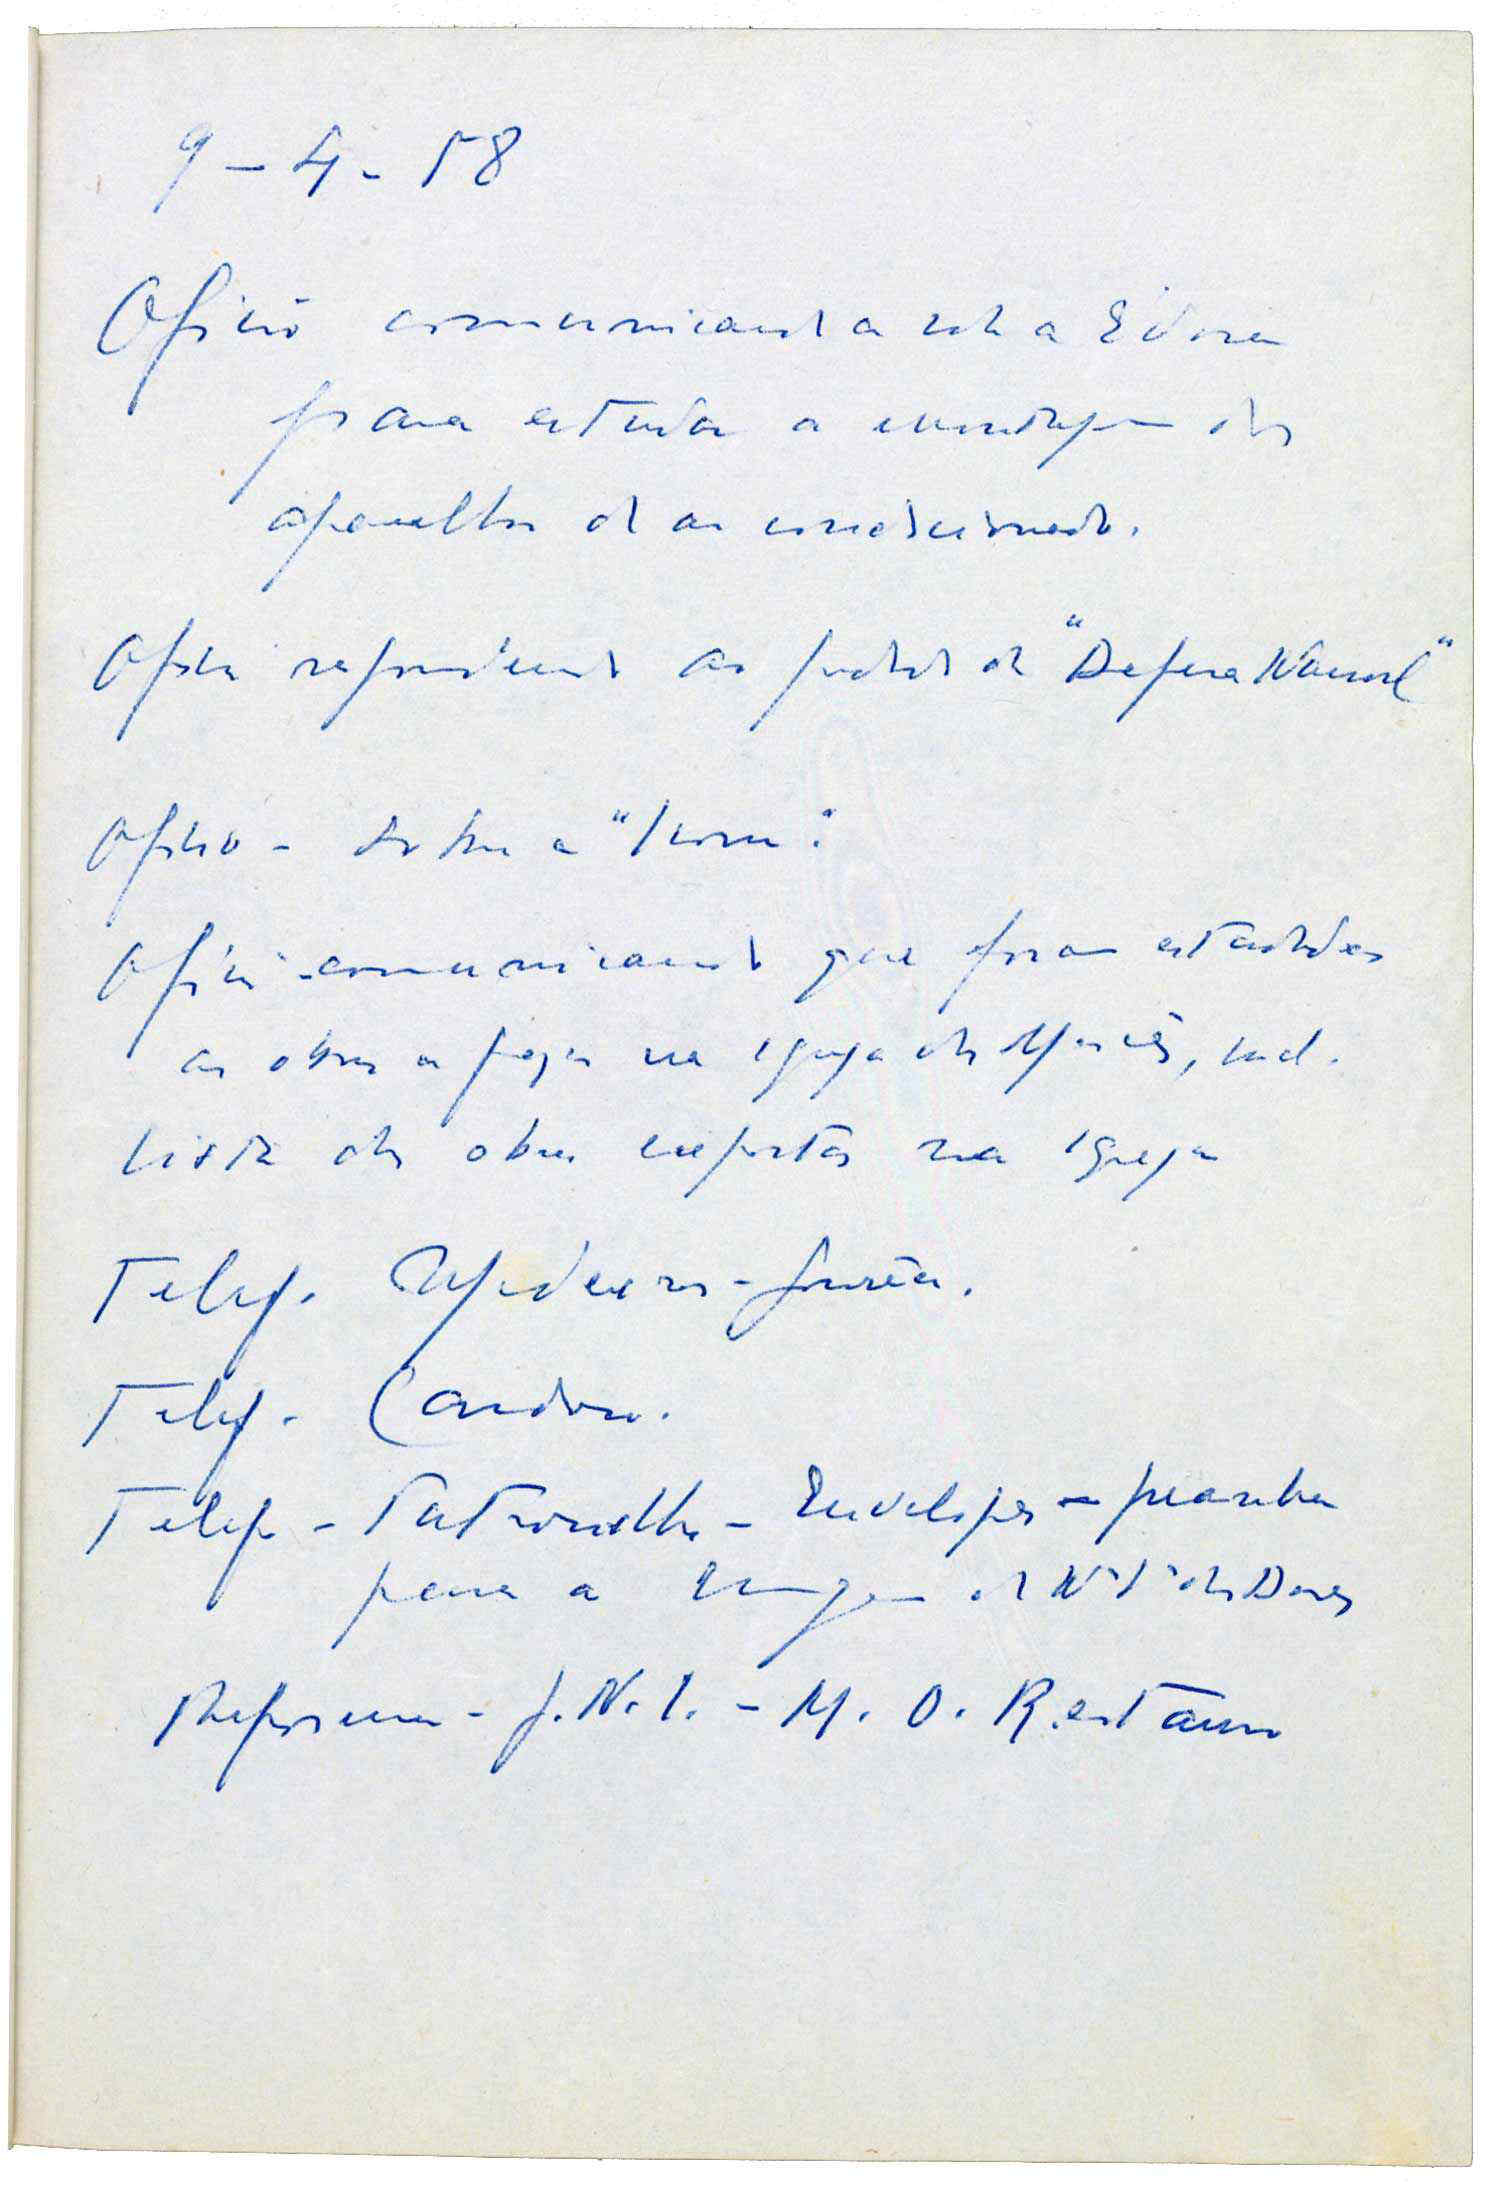 9-4-58
Oficio comunicando a ida a Évora
para estudar a montagem dos
aparelhos de ar condicionado.
Oficio respondendo ao pedido de "Defesa Nacional"
Oficio - sobre a
Oficio comunicando que foram estudadas
as obras a fazer na igreja das Mercês, incl.
lista das obras expostas na igreja
Telef.
Telef. Cardoso.
Telef - - Envelopes - peanha
para a Imagem de Nª Sª das Dores
- J.N.I. - M. O. Restauro